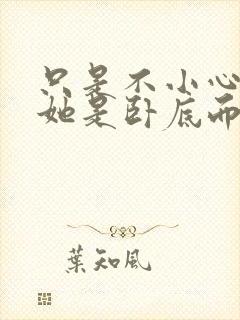 只是不小心
她是卧底而
葉知風